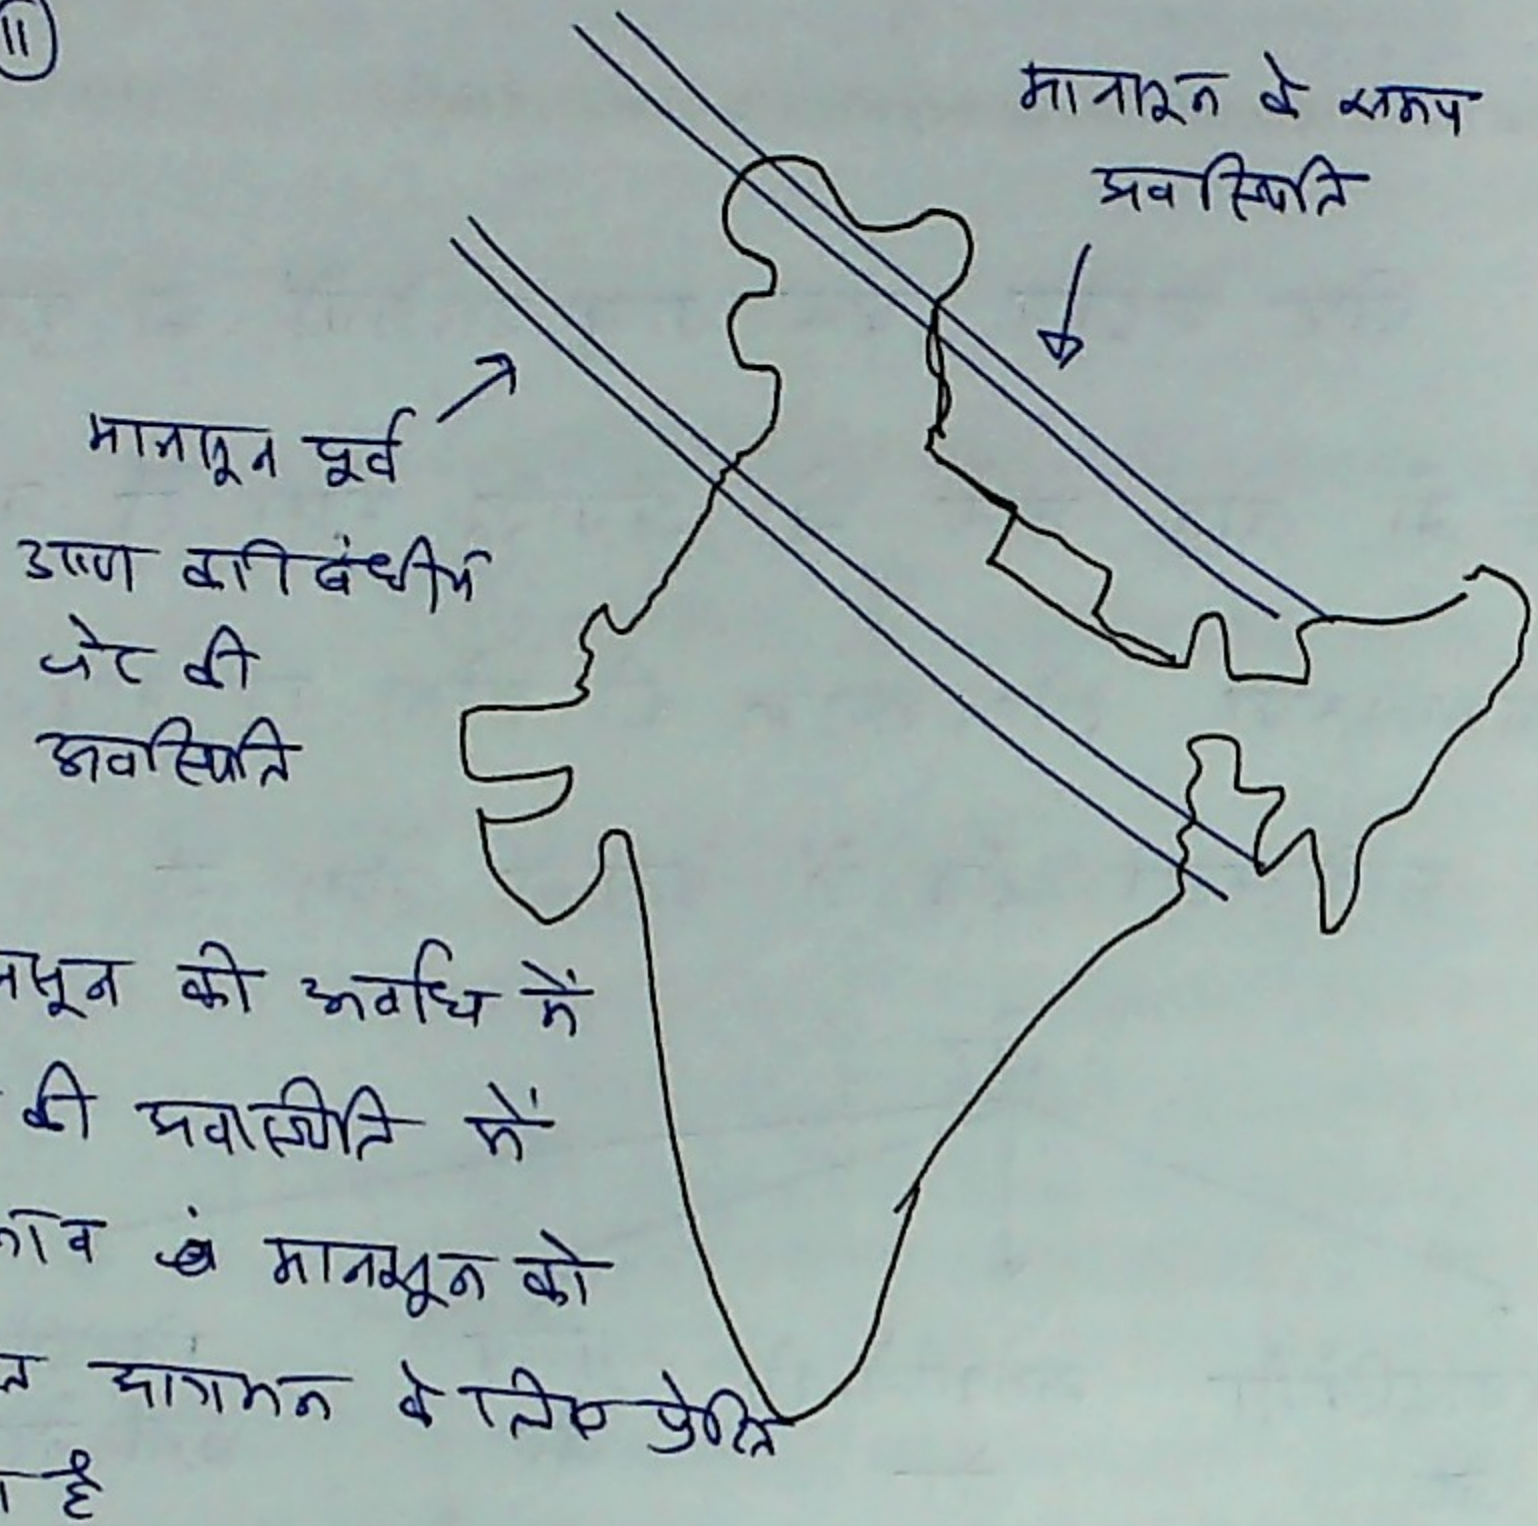 11
मानसून के समय
अवस्थिति
मानसून पूर्व
उष्ण कटिबंधीय
जेट की
अवस्थिति
नसून की अवधि में
की अवस्थिति में
मानसून को
आगमन के लिए प्रेरित
है